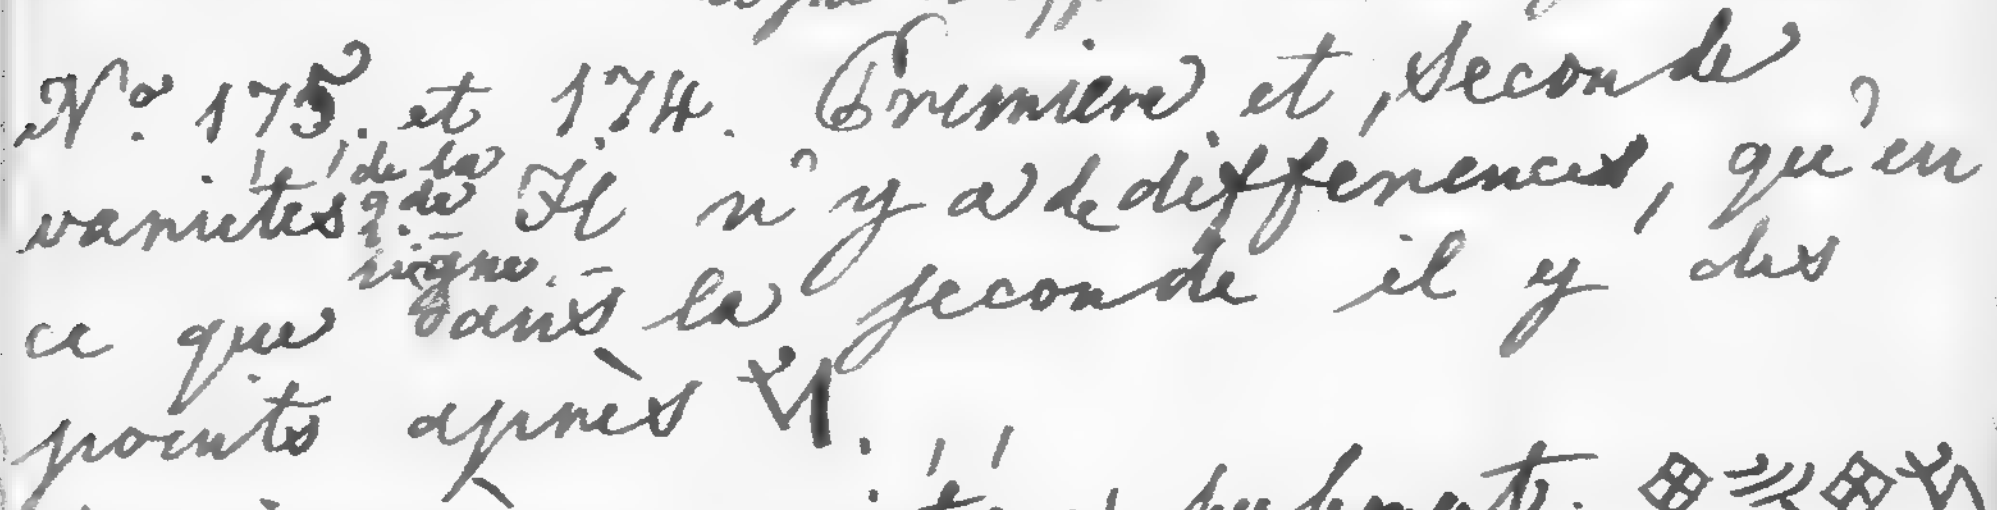 No. 175. et 174. Premiere et Seconde
variétés de la
g. de Il n'y a de differences, qu'en
signe.
ce que dans la seconde il y des
points après